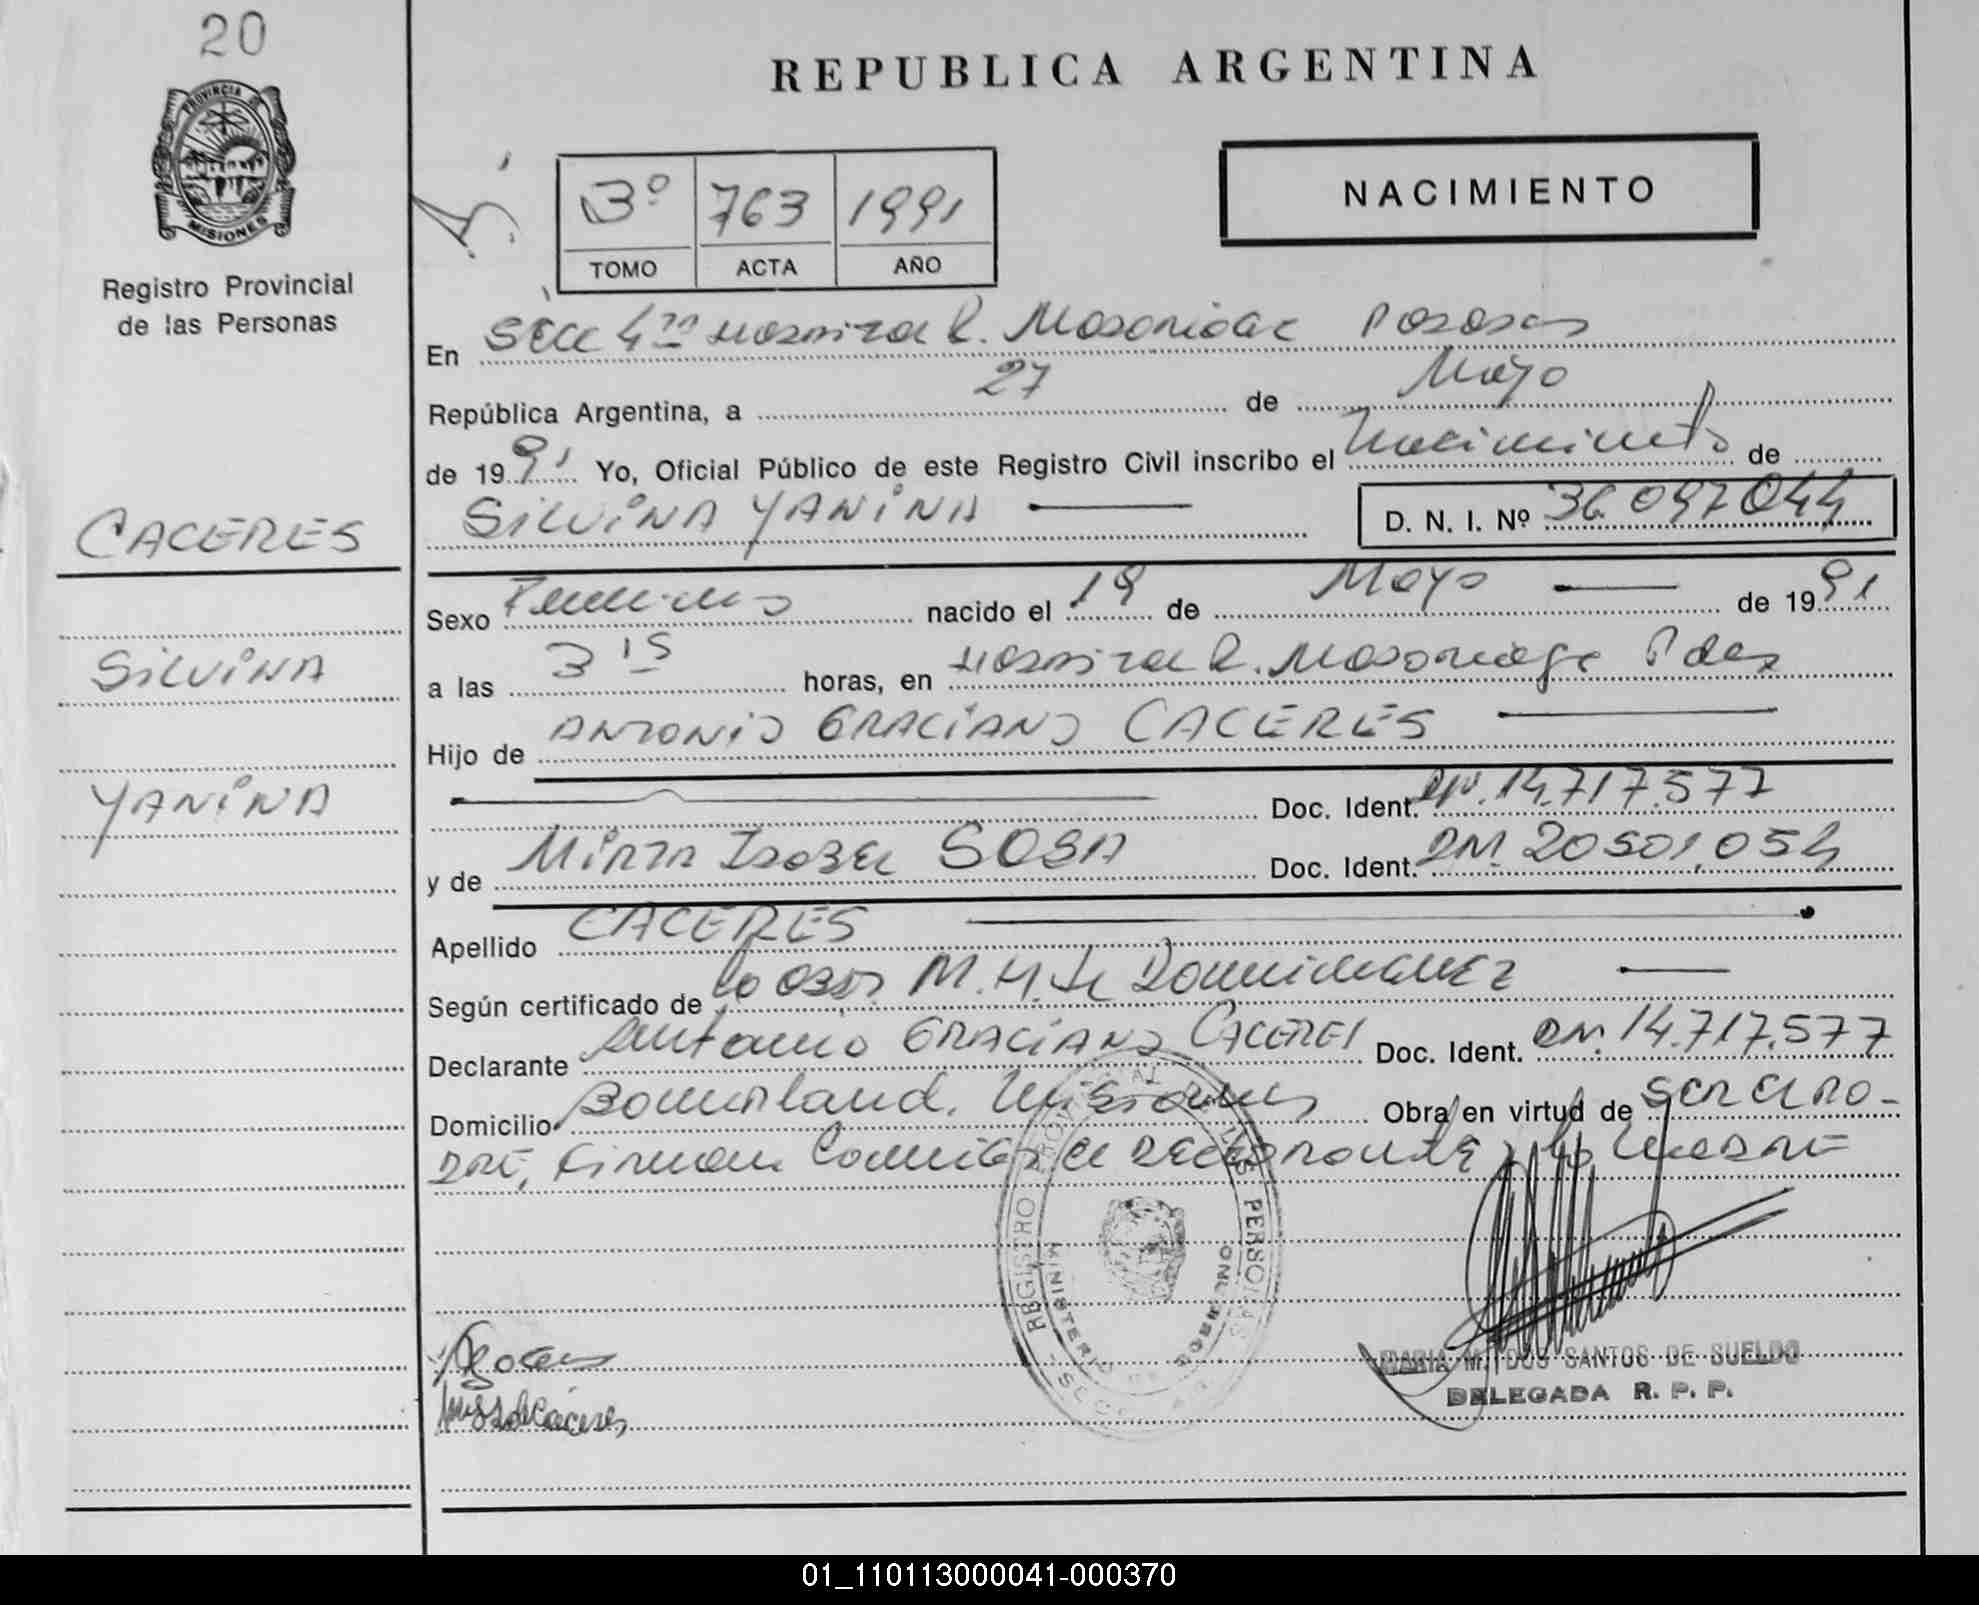 20
PROVINCIA DE
MISIONES
Registro Provincial
de las Personas
CACERES
SILVINA
YANINA
REPUBLICA ARGENTINA
NACIMIENTO
3º 763 1991
TOMO ACTA AÑO
En Secc 4ta Hospital R. Madariaga Posadas
República Argentina, a 27 de Mayo
de 1991 Yo, Oficial Público de este Registro Civil inscribo el Nacimiento de
SILVINA YANINA D. N. I. Nº 36.097.044
Sexo Femenino nacido el 19 de Mayo de 1991
a las 3 15 horas, en Hospital R. Madariaga Pdas
Hijo de ANTONIO GRACIANO CACERES
Doc. Ident. DNI. 14.717.577
y de MIRTA ISABEL SOSA Doc. Ident. DNI. 20501.054
Apellido CACERES
Según certificado de la Obst. M. H. de DOMINGUEZ
Declarante Antonio GRACIANO CACERES Doc. Ident. DNI. 14.717.577
Domicilio Bompland. Misiones Obra en virtud de ser el pa-
dre, firman el declarante y la madre
REGISTRO PERSONAS
MINISTERIO DE GOBIERNO
MARIA M. DOS SANTOS DE SUELDO
DELEGADA R. P. P.
01_110113000041-000370